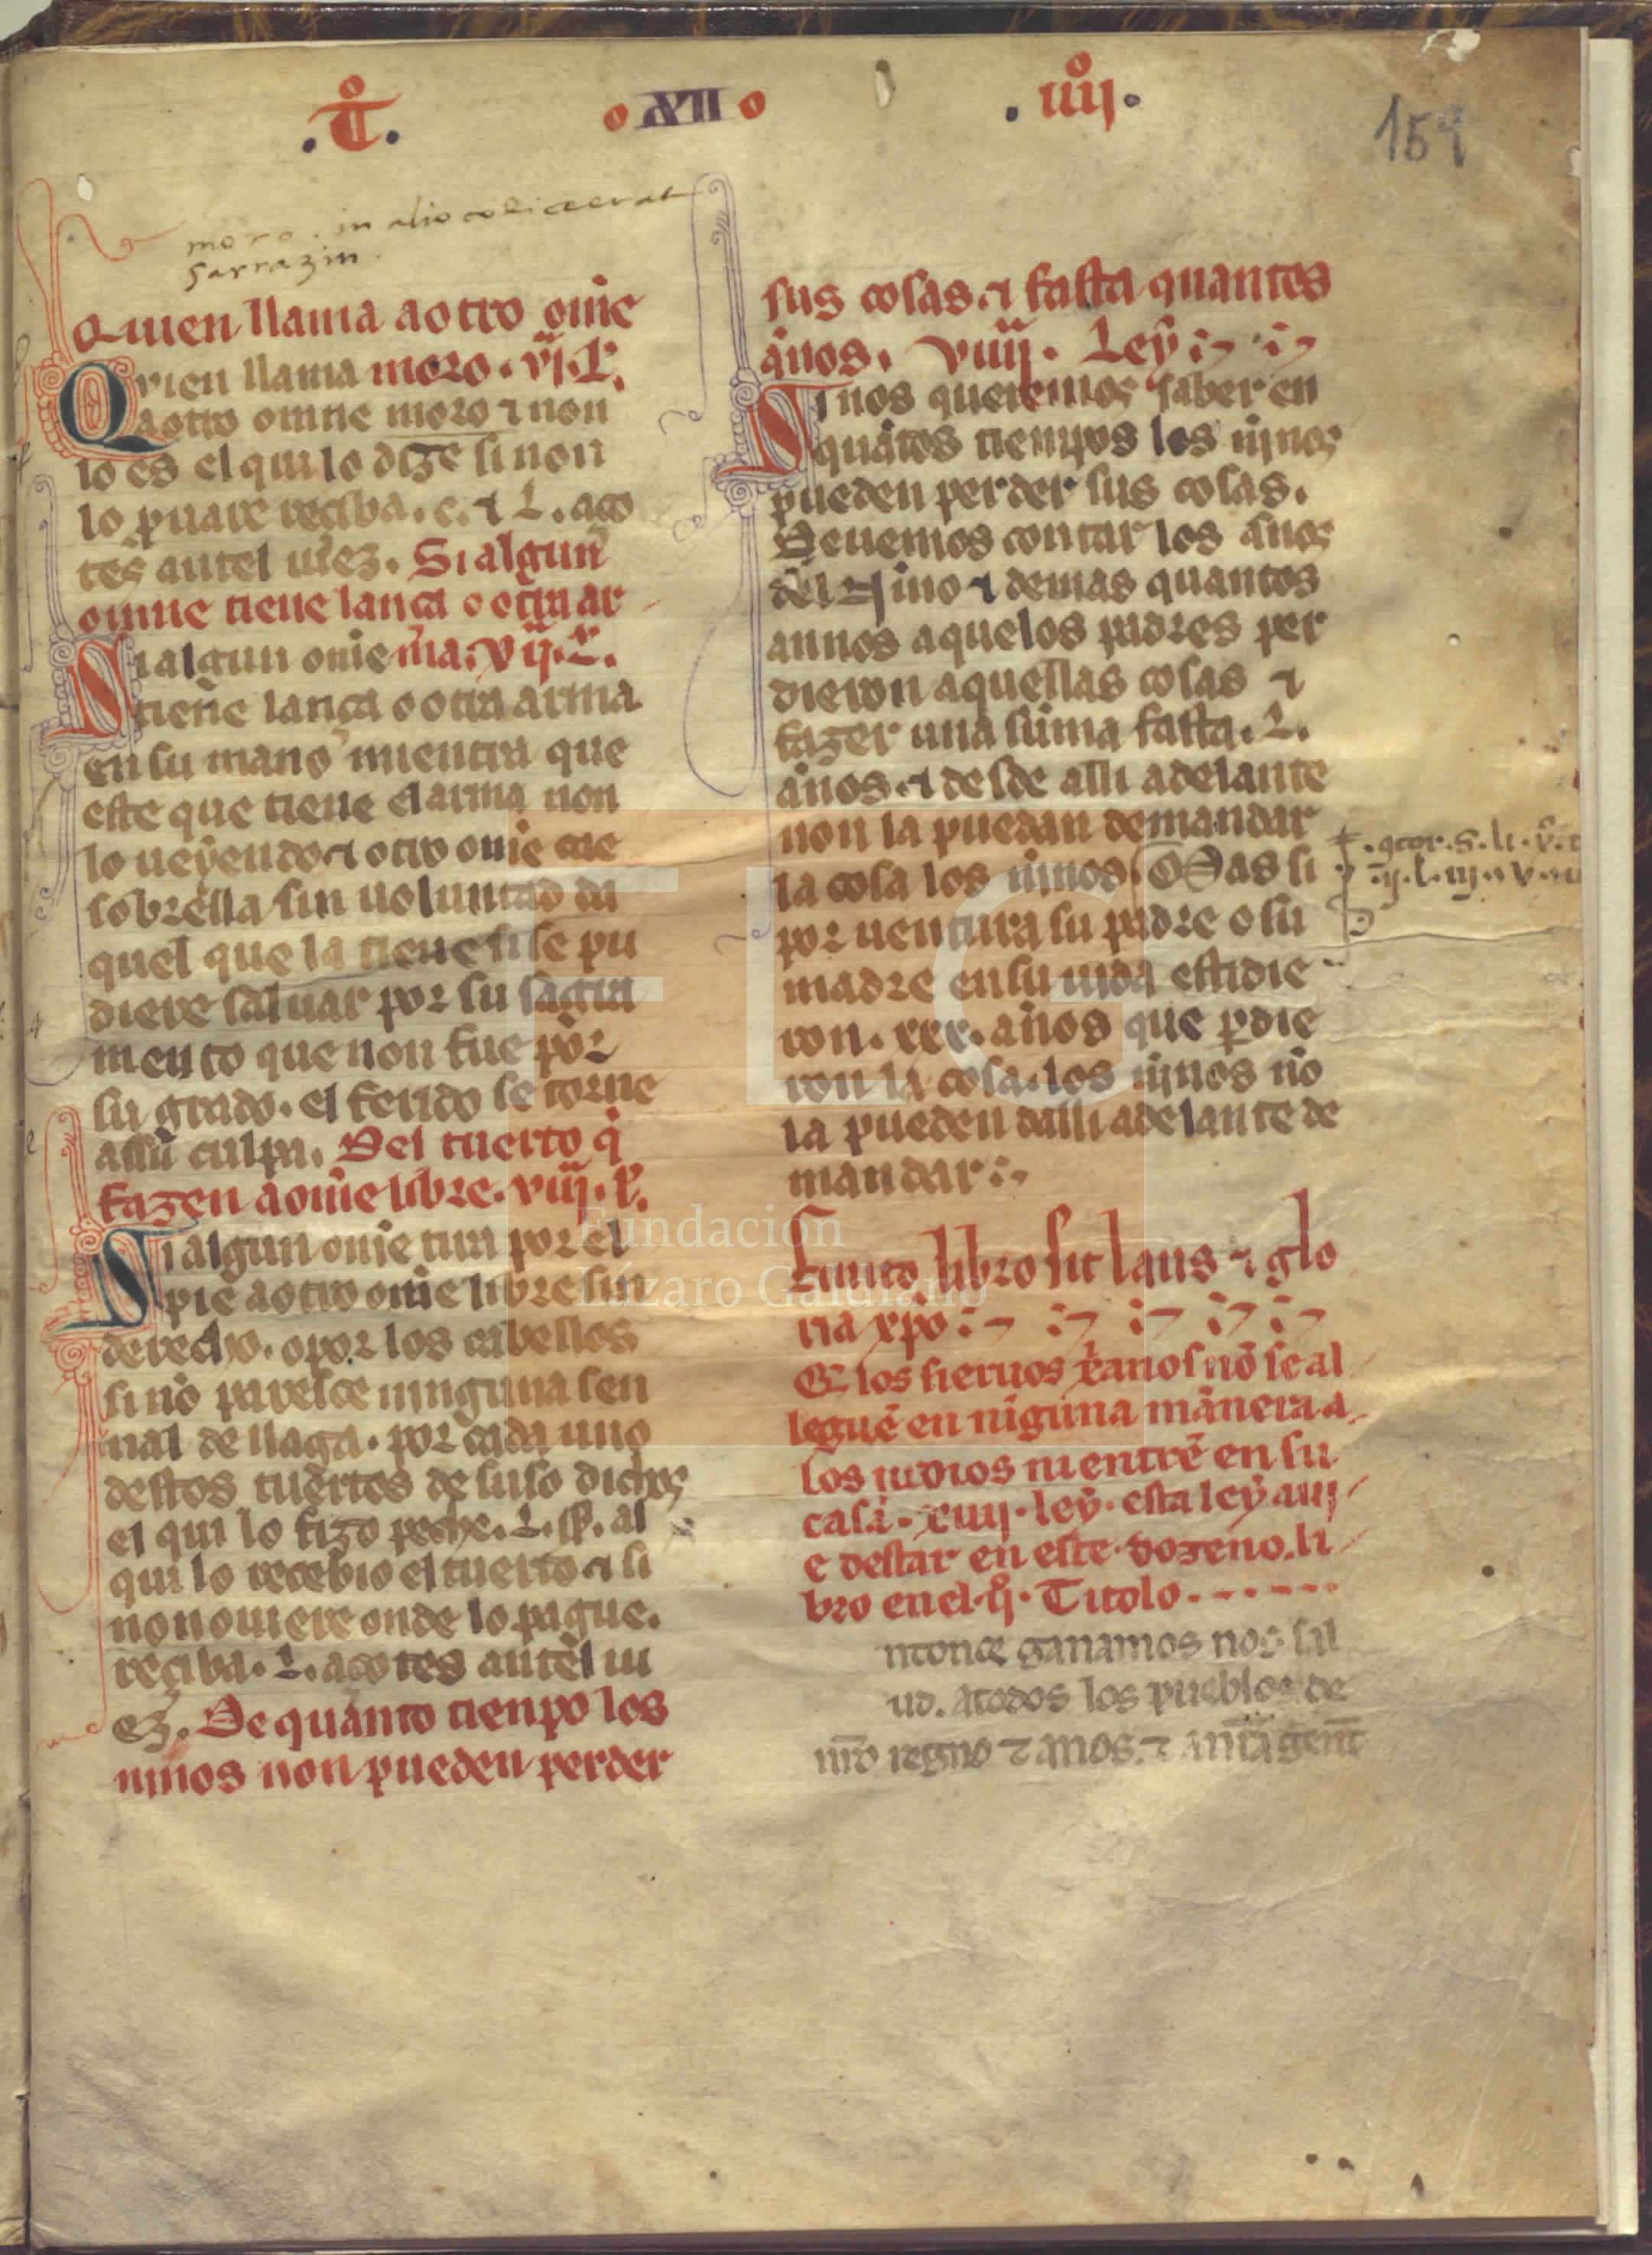 .T͛. · XII · . iiij͛ .
159
moro . in alio codice erat
sarrazin .
Quien llama a otro om̃e
moro . vj . L͛.
Quien llama
a otro omne moro ⁊ non
lo es el qui lo dize si non
lo ꝓuare reciba . c . ⁊ L . aço
tes antel iuez . Si algun
omne tiene lança o otra ar
ma . vij . L͛.
Si algun om̃e
tiene lança o otra arma
en su mano mientra que
este que tiene el arma non
lo ueyendo ⁊ otro om̃e cae
sobrella sin uoluntad da
quel que la tiene si se pu
diere saluar por su sagra
mento que non fue por
su grado . el ferido se torne
assu culpa . Del tuerto q̇
fazen a om̃e libre . viij . L͛.
Si algun om̃e tira por el
pie a otro om̃e libre sin
derecho . o por los cabellos
si nõ paresce ninguna sen
nal de llaga . por cada uno
destos tuertos de suso dichos
el qui lo fizo peche . L . sł . al
qui lo recebio el tuerto ⁊ si
non ouiere onde lo pague .
reciba . L . açotes antel iu
ez . De quanto tienpo los
ninos non pueden perder
sus cosas . ⁊ fasta quantos
años . viiij . Ley
Si nos queremos saber en
quãtos tiempos los ninos
pueden perder sus cosas .
Deuemos contar los años
del nino ⁊ demas quantos
annos aquelos padres per
dieron aquellas cosas ⁊
fazer una suma fasta . L .
años . ⁊ desde alli adelante
non la puedan demandar
la cosa los ninos . Mas si
por uentura su padre o su
madre en su uida estidie
ron . xxx . años que ꝑdie
ron la cosa . los ninos nõ
la pueden dalli adelante de
mandar
Finito libro sit laus ⁊ glo
ria xp̃o
Et los sieruos xp̃ianos nõ se al
leguẽ en niguna manera a
los iudios ni entrẽ en su
casa . xiiij . ley . esta ley aui
e destar en este dozeno . li
bro en el . ij͛ . Titolo
ntonce ganamos nos sal
ud . a todos los pueblos de
nr̃o regno ⁊ a nos . ⁊ a nr̃a gent̃
Fundación
Lázaro Galdiano